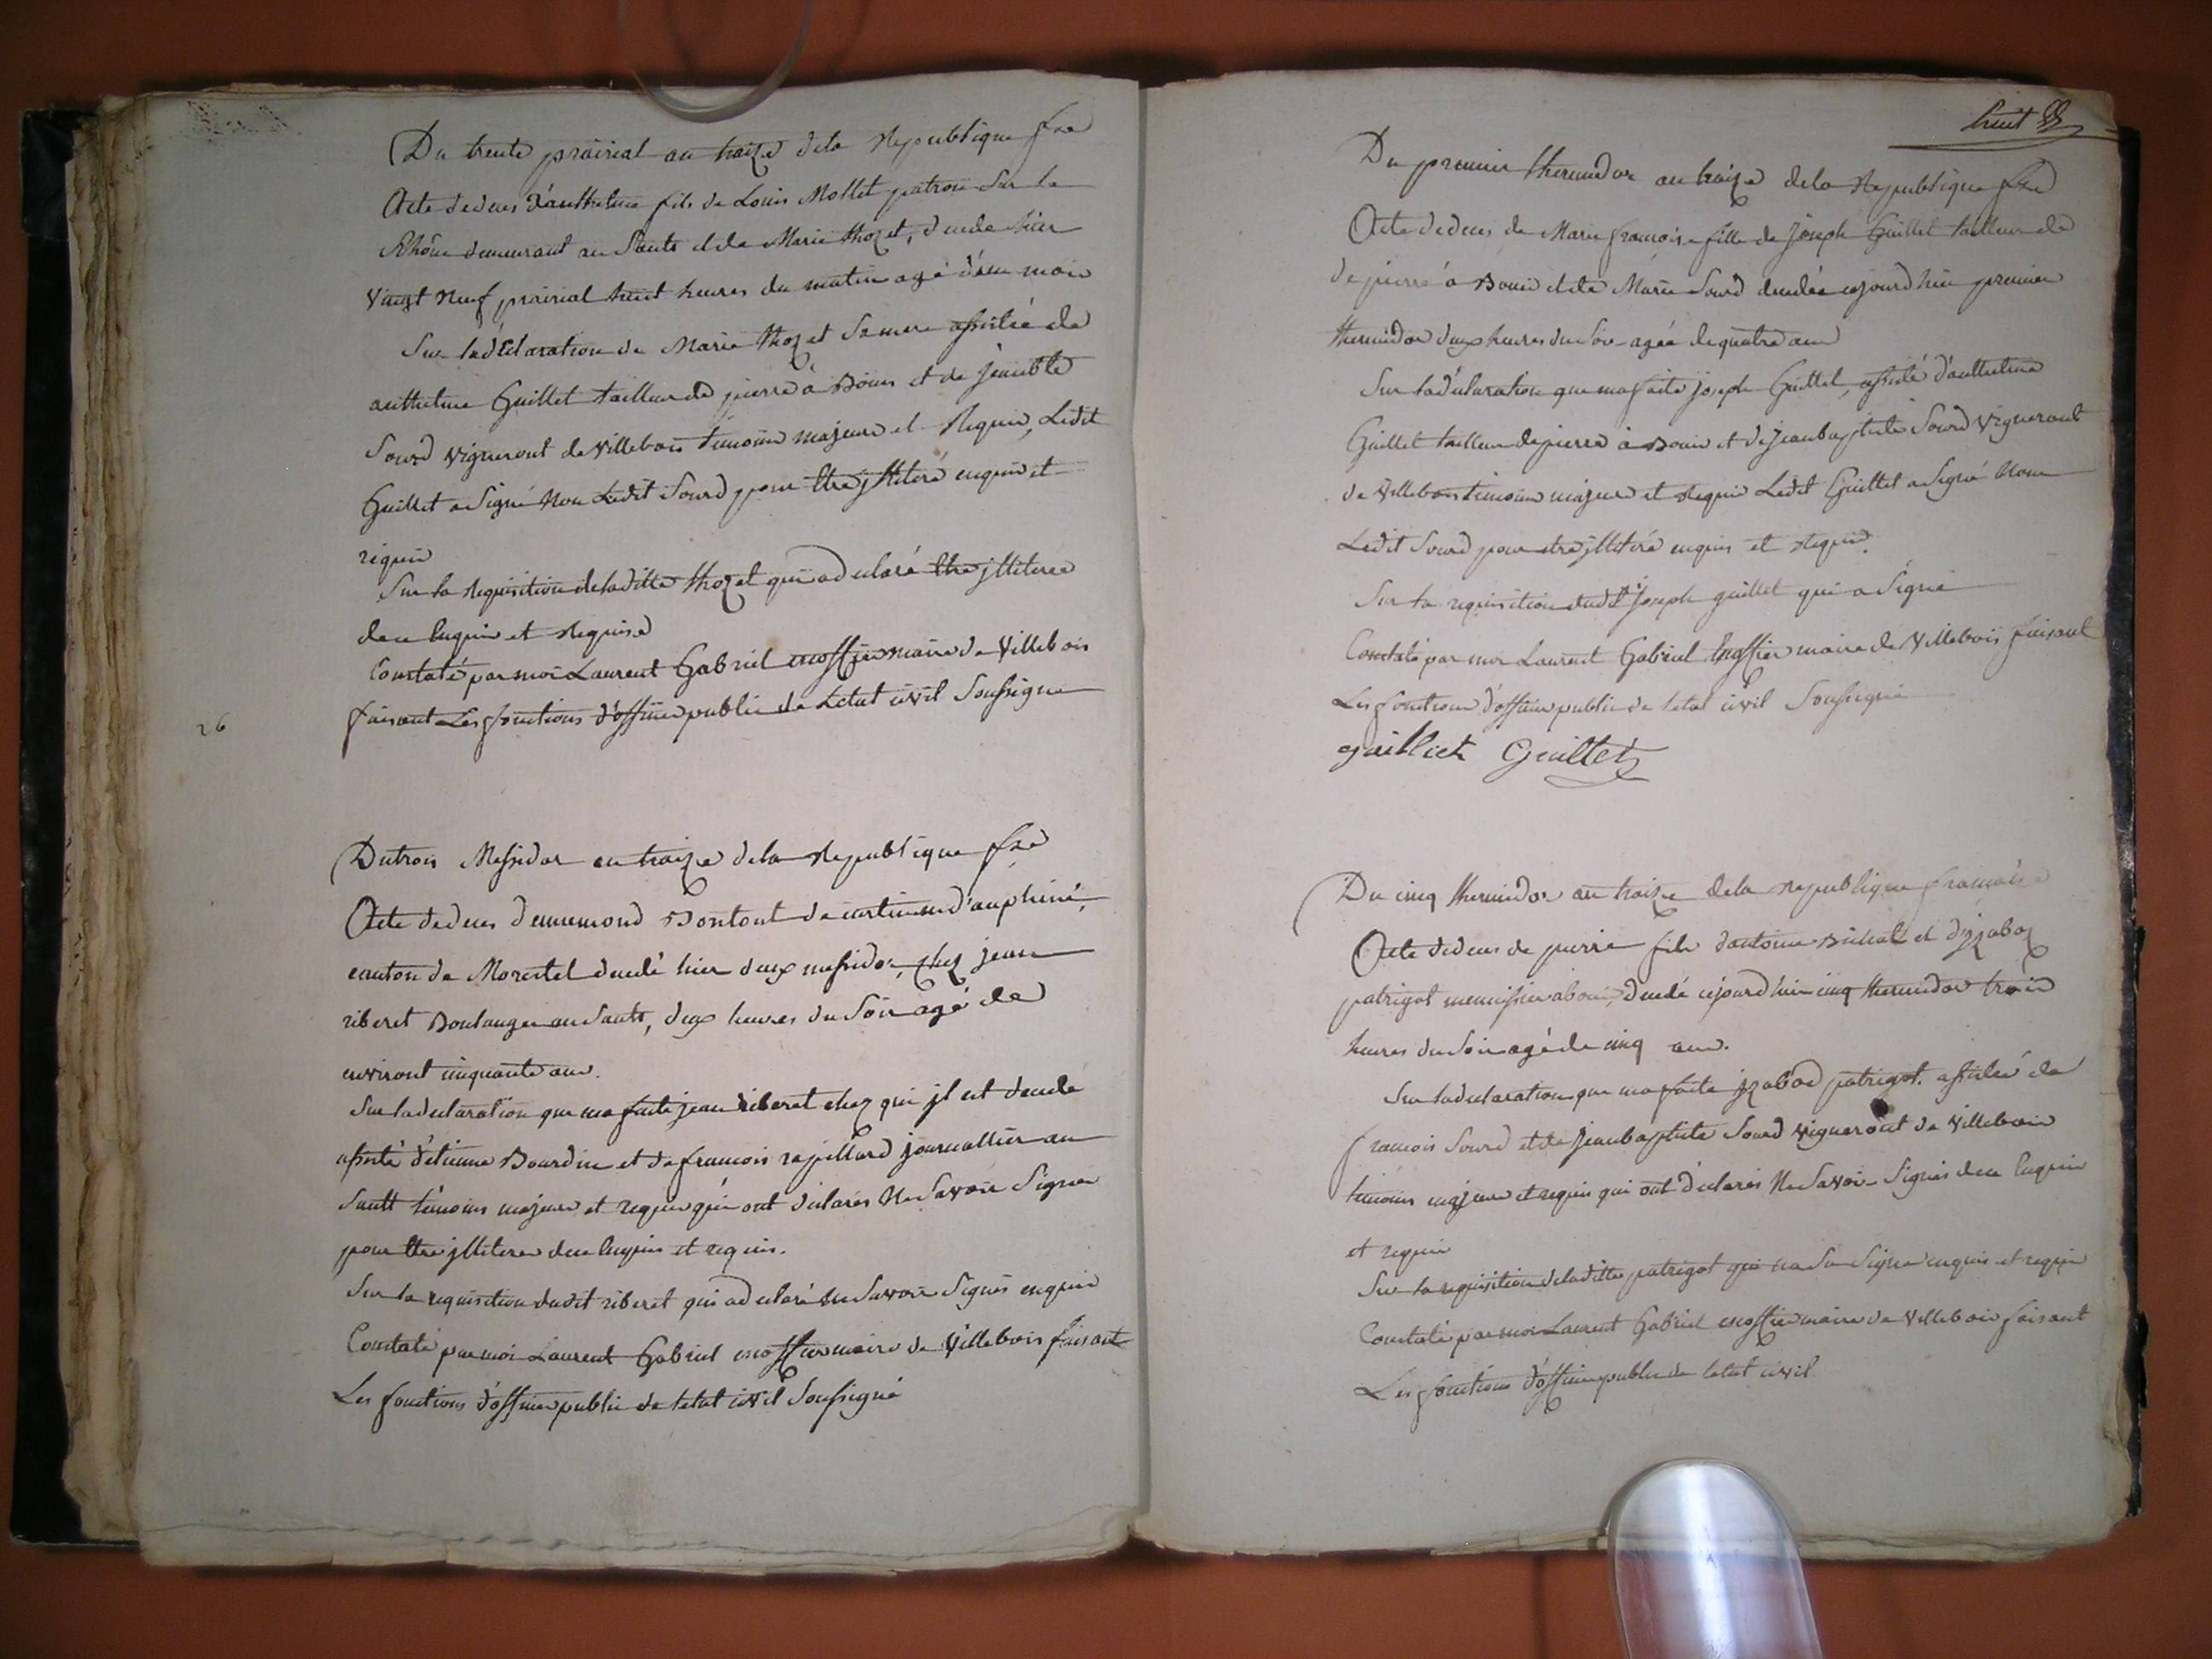 Du trente prairial an traize dela Republique fse
Acte deduces d'anthelme fils de Louis Mollet patron Sur le
Rhône demeurant au Saults et de Marie thozet, decede hier
vingt neuf prairial huit heures du matin agé d'un mois
Sur la déclaration de Marie thozet Sa mere assistée de
anthelme Guillet tailleur de pierre à Bouis et de jeanbte
Sourd vigneront de villebois temoins majeurs et Requis, Ledit
Guillet a Signé Non Ledit Sourd pour être jlliteré enquis et
requis
Sur la Requisition de laditte thozet qui a declaré être jlliterée
de ce Enquise et Requise
Constaté par moi Laurent Gabriel maire de Villebois
faisant Les fonctions d'officier public de Letat civil Soussigné
26
Du trois Messidor an traize dela Republique fse
Acte de deces Bontout de en d'auphiné,
canton de Morestel decedé hier deux messidor, chez jean
riberet Boulanger au Sault, deux heures du Soir agé de
environt cinquante ans.
Sur la declaration que ma faite jean riberet chez qui jl est decede
assisté d'étienne Bourdin et de francois rapillard journallier au
Sault témoins majeurs et requis qui ont déclarés Ne Savoir Signer
pour être jlliteres de ce Enquis et requis.
Sur la requisition dudit riberet qui a declaré Ne Savoir Signer enquis
Constaté par moi Laurent Gabriel maire de Villebois faisant
Les fonctions d'officier public de letat civil Soussigné
huit
Du premier thermidor an traize dela Republique fse
Acte de deces de Marie francoise fille de Joseph Guillet tailleur de
de pierre à Bouis et de Marie Sourd decedée cejourdhui premier
thermidor deux heures du Soir agée de quatre ans
Sur la declaration que ma faite joseph Guillet, assisté d'anthelme
Guillet tailleur de pierre à Bouis et de jeanbaptiste Sourd vigneront
de Villebois temoins majeurs et Requis Ledit Guillet a Signé Non
Ledit Sourd pour etre jlliteré enquis et Requis.
Sur la requisition dudit Joseph guillet qui a Signé
Constaté par moi Laurent Gabriel maire de Villebois faisant
Les fonctions d'officier public de letat civil Soussigné
guilliet Guillet
Du cinq thermidor an traize dela Republique francaise
Acte de deces de pierre fils dantoine Bichat et
patrigot menuisier a bouis, decedé cejourdhui cinq thermidor trois
heures du Soir agé de cinq ans.
Sur la declaration que ma faite patrigot. assistée de
francois Sourd et de jeanbaptiste Sourd vigneront de Villebois
témoins majeurs et requis qui ont déclarés Ne Savoir Signer de ce Enquis
et requis
Sur la requisition de laditte patrigot qui na Su Signer enquise et requise
Constaté par moi Laurent Gabriel maire de Villebois faisant
Les fonctions d'officier public de letat civil